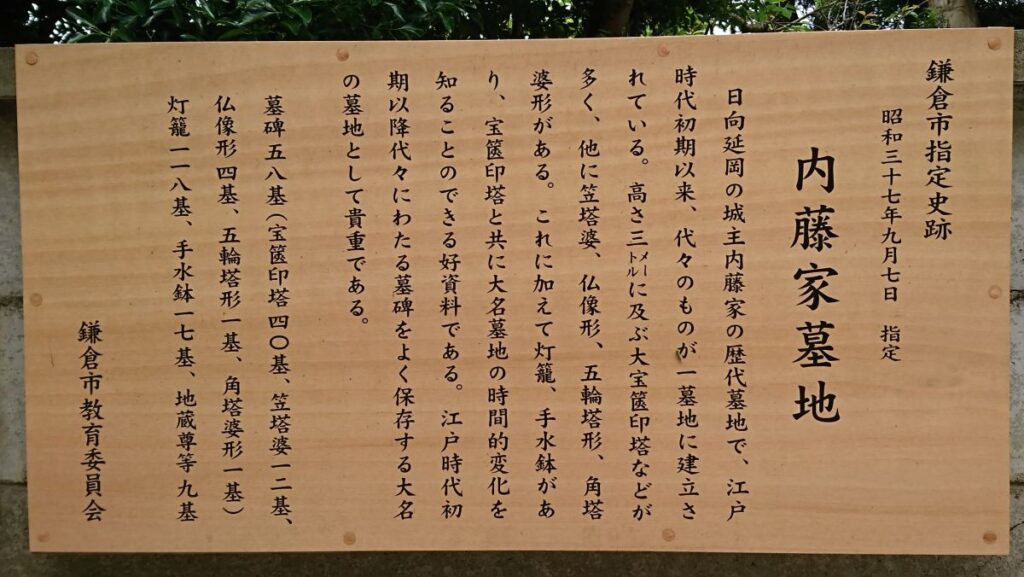 鎌倉市指定史跡
昭和三十七年九月七日 指定
内藤家墓地
日向延岡の城主内藤家の歴代墓地で、江戸
時代初期以来、代々のものが一墓地に建立さ
れている。高さ三メートルに及ぶ大宝篋印塔などが
多く、他に笠塔婆、仏像形、五輪塔形、角塔
婆形がある。これに加えて灯籠、手水鉢があ
り、宝篋印塔と共に大名墓地の時間的変化を
知ることのできる好資料である。江戸時代初
期以降代々にわたる墓碑をよく保存する大名
の墓地として貴重である。
墓碑五八基(宝篋印塔四〇基、笠塔婆一二基、
仏像形四基、五輪塔形一基、角塔婆形一基)
灯籠一一八基、手水鉢一七基、地蔵尊等九基
鎌倉市教育委員会